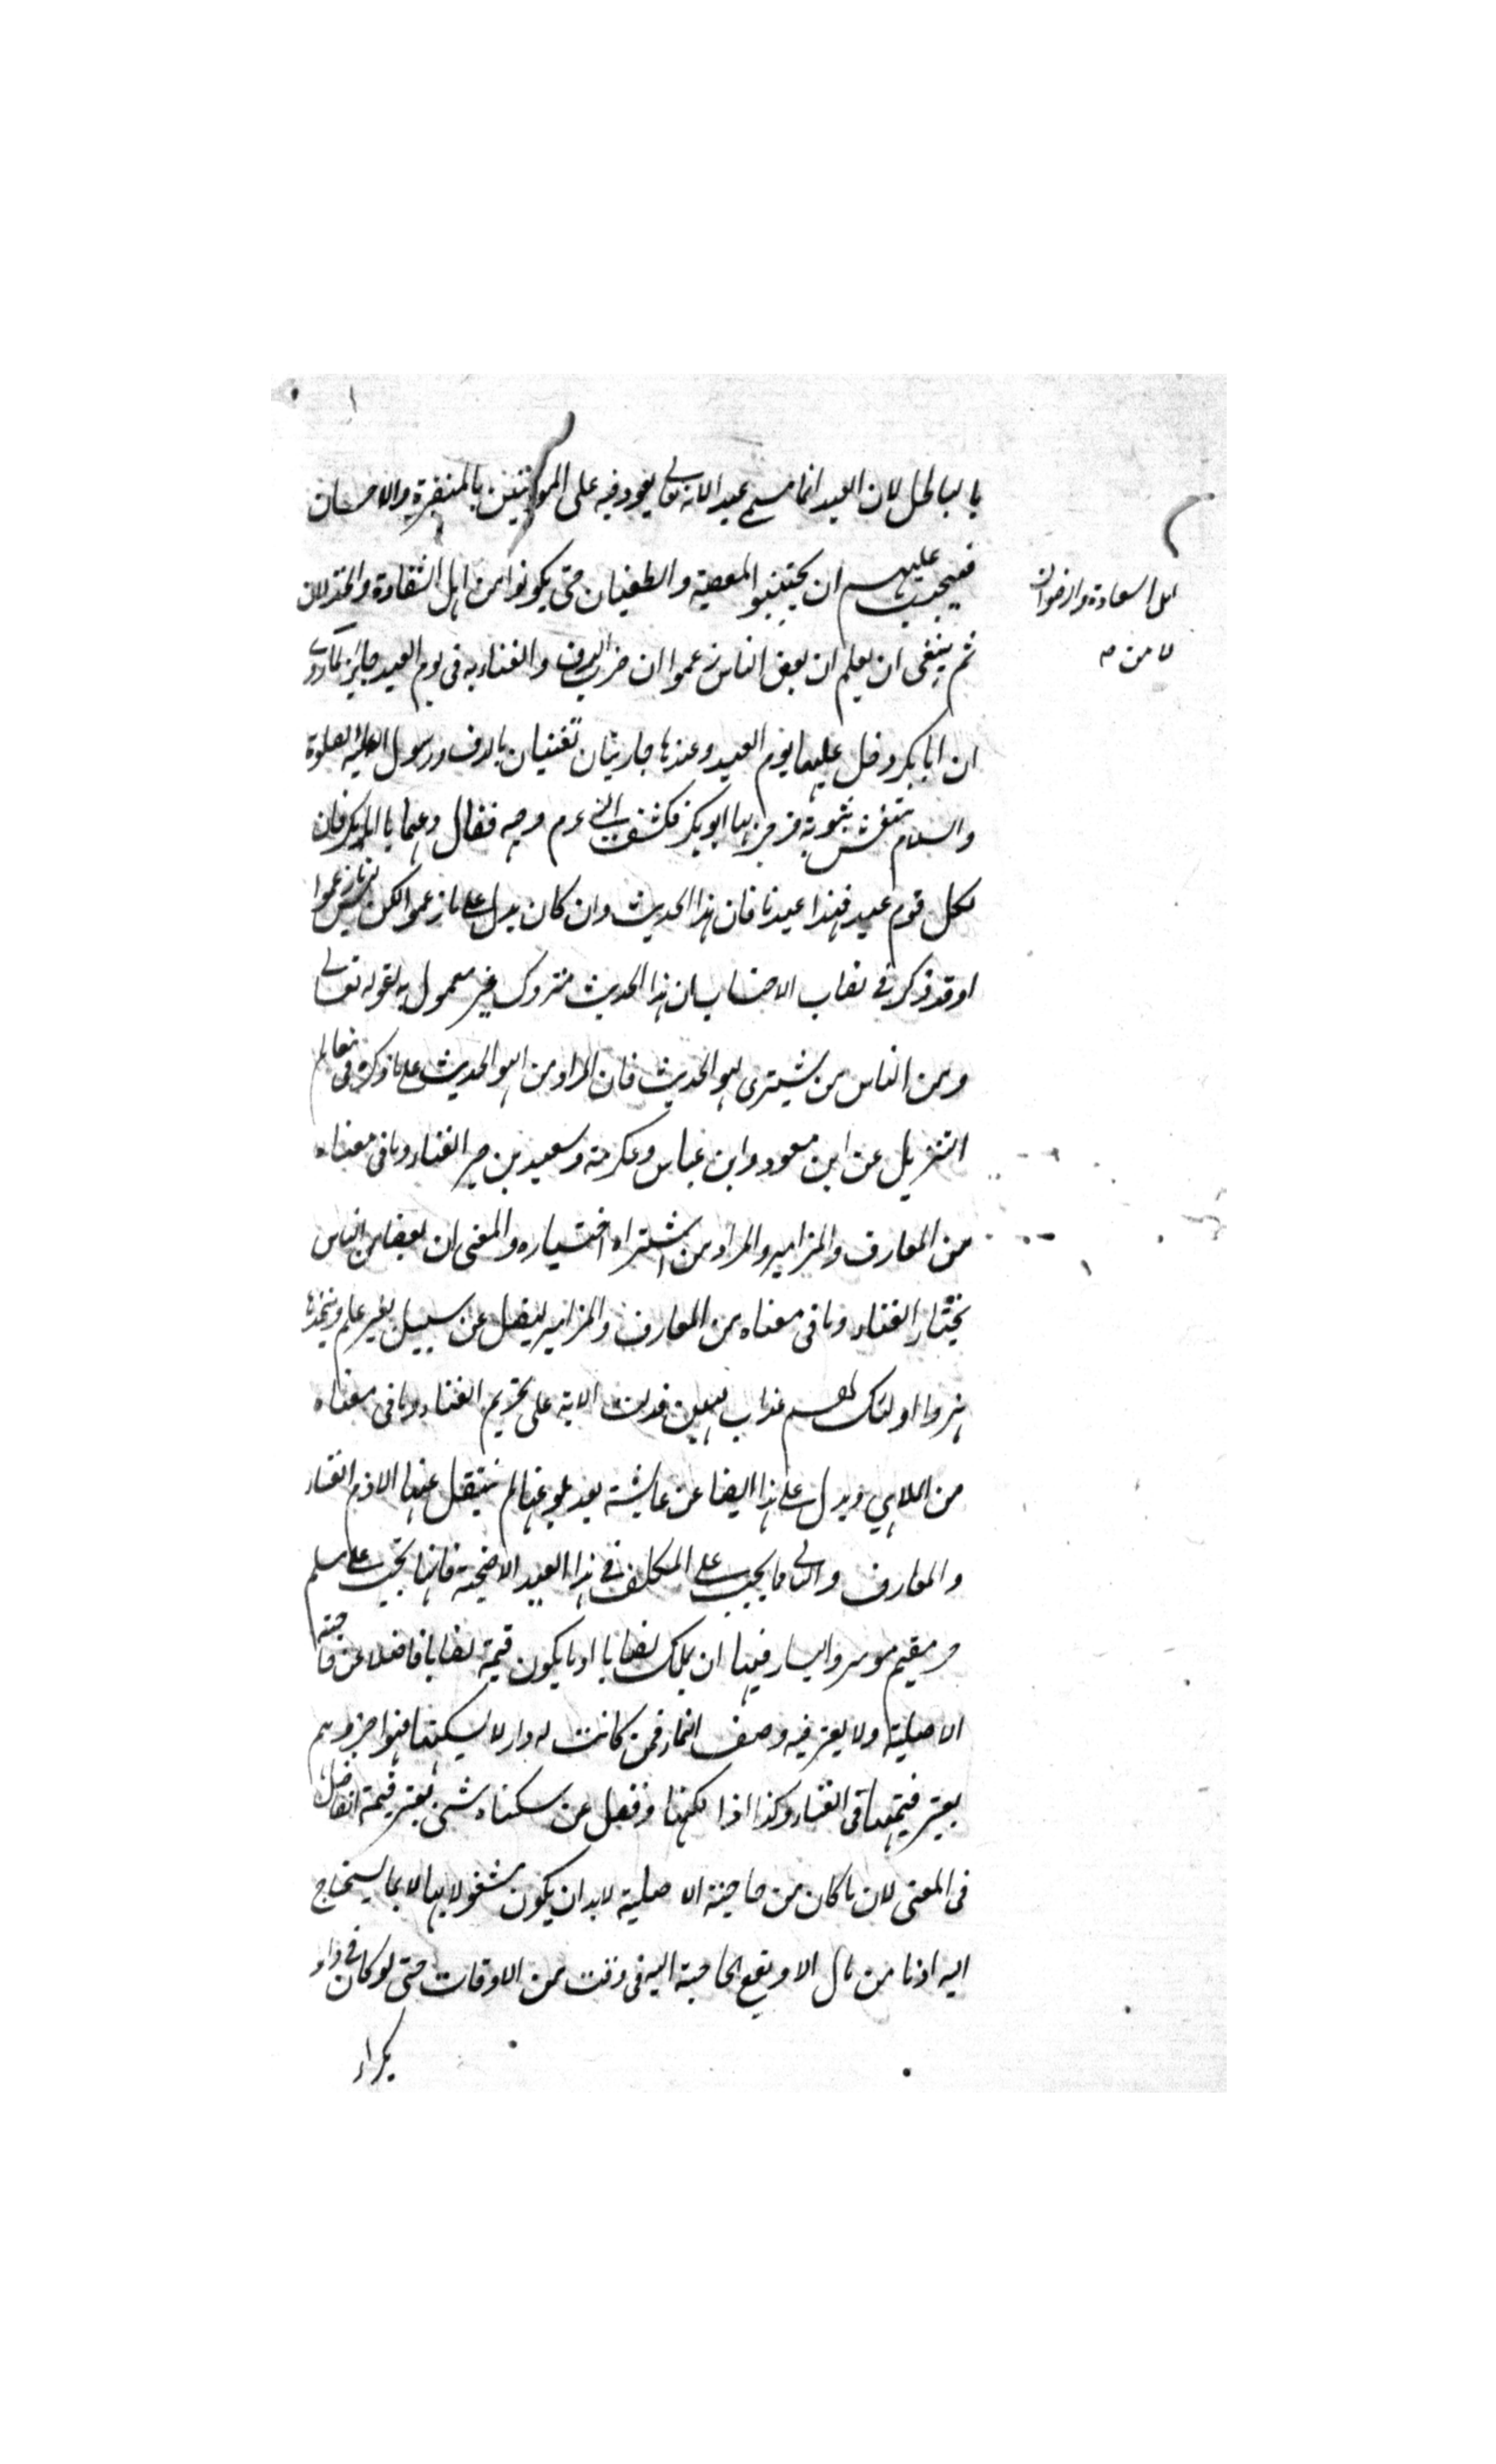 بالباطل لان العيد انما سمى عيد الانه تعالى يعود فيه على المؤمنين بالمغفرة والاحسان
فيجب عليهم ان يجتنبوا المعصية والطغيان حتى يكونوا من اهل الشقاوة والخذلان
اهل السعادة والرضوان
لا من صه
ثم ينبغى ان يعلم ان بعض الناس زعموا ان ضرب الدف والغناء به فى يوم العيد جائز لما روى
ان ابا بكر دخل عليها يوم العيد وعندها جاريتان تغنيان بالدف ورسول الله عليه الصلوة
والسلام متغش بثوبه فزجرها ابو بكر فكشف النبى عم وجهه فقال دعهما يا ابا بكر فان
لكل قوم عيد فهذا عيدنا فان هذا الحديث وان كان يدل على ما زعموا لكن ليس زعموا
اوقد ذكر فى نصاب الاحتساب ان هذا الحديث متروك غير معمول به لقوله تعالى
ومن الناس من يشترى لهو الحديث فان المراد من لهو الحديث على ما ذكره فى معالم
التنزيل عن ابن مسعود وابن عباس وعكرمة وسعيد بن جبير الغناء وما فى معناه
من المعازف والمزامير والمراد من اشتراه اختياره والمعنى ان بعضا من الناس
يختار الغناء وما فى معناه من المعازف والمزامير ليضل عن سبيل بغير علم ويتخذها
هزوا اولئك لهم عذاب مهين فدلت الاية على تحريم الغناء وما فى معناه
من الملاهي ويدل على هذا ايضا عن عايشة بعد بلوغها لم ينتقل عنها الا ذم الغناء
والمعازف والثانى ما يجب على المكلف فى هذا العيد الاضحية فانها تجب على مسلم
حر مقيم موسر واليسار فيها ان يملك نصابا او ما يكون قيمة نصابا فاضلا عن حاجته
الاصلية ولا يعتبر فيه وصف النماء فمن كانت له دار لا يسكنها فهو اجر وهم
يعتبر قيمتها فى الغناء وكذا اذا سكنها وفضل عن سكناه شئ يعتبر قيمة الفاضل
فى المعنى لان ما كان من حاجته الاصلية لابد ان يكون مشغولا بها لا بما يستحتاج
اليه اذ ما من مال الا ويقع الحاجة اليه فى وقت من الاوقات حتى لو كان فى دار
بكراء